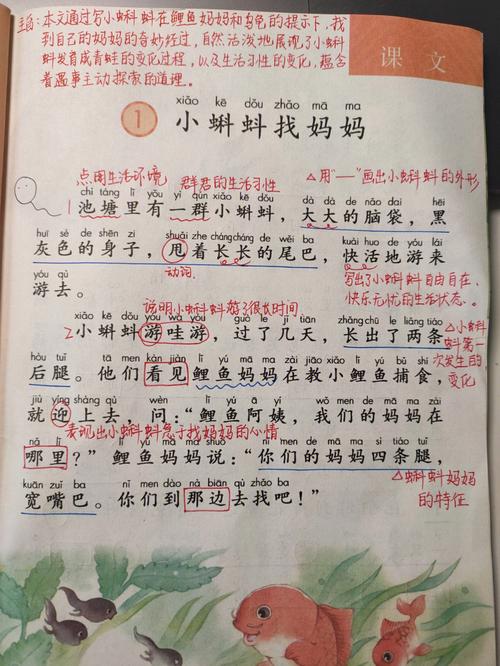 主旨：本文通过写小蝌蚪在鲤鱼妈妈和乌龟的提示下，找
到自己的妈妈的奇妙经过，自然活泼地展现了小蝌
蚪发育成青蛙的变化过程，以及生活习性的变化，蕴含
着遇事主动探索的道理。
课文
xiǎo kē dǒu zhǎo mā ma
1 小蝌蚪找妈妈
点明生活环境 群居的生活习性 △用"——"画出小蝌蚪的外形
chí táng lǐ yǒu yì qún xiǎo kē dǒu dà dà de nǎo dai hēi
1 池塘里有一群小蝌蚪，大大的脑袋，黑
huī sè de shēn zi shuǎi zhe cháng cháng de wěi ba kuài huo de yóu lái
灰色的身子，甩着长长的尾巴，快活地游来
yóu qù
游去。
动词
写出了小蝌蚪自由自在、
快乐无忧的生活状态。
说明小蝌蚪游了很长时间
xiǎo kē dǒu yóu wa yóu guò le jǐ tiān zhǎng chū le liǎng tiáo
2 小蝌蚪游哇游，过了几天，长出了两条
△小蝌蚪第一次发生的变化
hòu tuǐ tā men kàn jiàn lǐ yú mā ma zài jiāo xiǎo lǐ yú bǔ shí
后腿。他们看见鲤鱼妈妈在教小鲤鱼捕食，
jiù yíng shàng qù wèn lǐ yú ā yí wǒ men de mā ma zài
就迎上去，问："鲤鱼阿姨，我们的妈妈在
表现出小蝌蚪急于找妈妈的心情
nǎ lǐ lǐ yú mā ma shuō nǐ men de mā ma sì tiáo tuǐ
哪里？"鲤鱼妈妈说："你们的妈妈四条腿，
kuān zuǐ ba nǐ men dào nà biān qù zhǎo ba
宽嘴巴。你们到那边去找吧！"
△蝌蚪妈妈
的特征